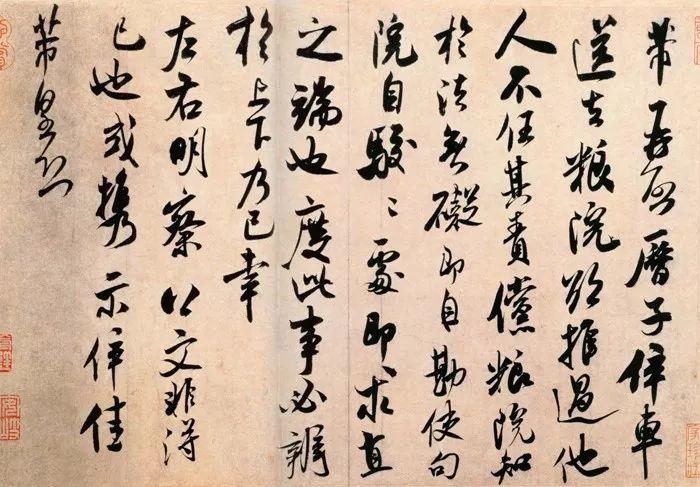 芾再啓曆子倅車
送去粮院欲推過他
人不任其責儻粮院知
於法無礙即自勘使句
院自駮〻處即求直
之端也度此事必辨
於上下乃已幸
左右明察公文非得
已也或攜示倅佳
芾皇恐